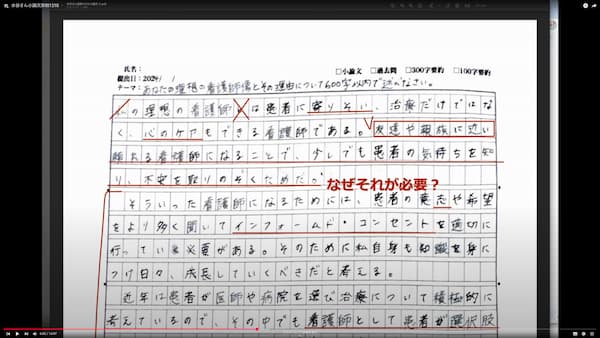 氏名：
□小論文 □過去問 □300字要約 □100字要約
提出日：2024/ /
テーマ：あなたの理想の看護師像とその理由について600字以内で述べなさい。
私の理想の看護師は患者に寄りそい、治療だけではな
く、心のケアもできる看護師である。友達や親族に近い
頼れる看護師になることで、少しでも患者の気持ちを知
り、不安を取りのぞくためだ。
なぜそれが必要？
そういった看護師になるためには、患者の意志や希望
をより多く聞いてインフォームド・コンセントを適切に
行っていく必要がある。そのために私自身も知識を身に
つけ日々、成長していくべきだと考える。
近年は患者が医師や病院を選び治療について積極的に
考えているので、その中でも看護師として患者が選択肢